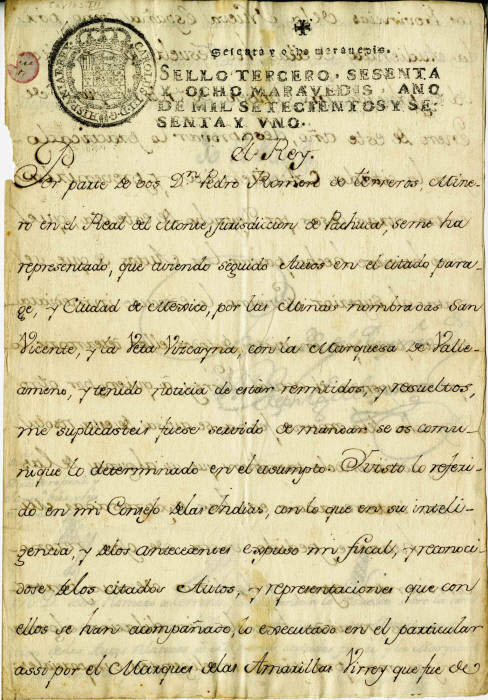 Sesenta y ocho maravedis.
SELLO TERCERO, SESENTA
Y OCHO MARAVEDIS, AÑO
DE MIL SETECIENTOS Y SE-
SENTA Y VNO.
el Rey.
Por parte de vos Dn. Pedro Romero de terreros, Mine-
ro en el Real del Monte, jurisdicion de Pachuca, seme ha
representado, que aviendo seguido Autos en el citado para-
ge, y Ciudad de Mexico, por las Minas nombradas San
Vicente, y la Veta Vizcayna, con la Marquesa de Valle-
ameno, y tenido noticia de estàr remitidos, y resueltos,
me suplicasteis fuese servido de mandar se os comu-
nique lo determinado en el asumpto. Y visto lo referi-
do en mi Consejo delas Indias, con lo que en su inteli-
gencia, y delos antecedentes expuso mi fiscal, y reconoci-
dose delos citados Autos, y representaciones que con
ellos se han acompañado, lo executado en el particular
assi por el Marques delas Amarillas Virrey que fue de